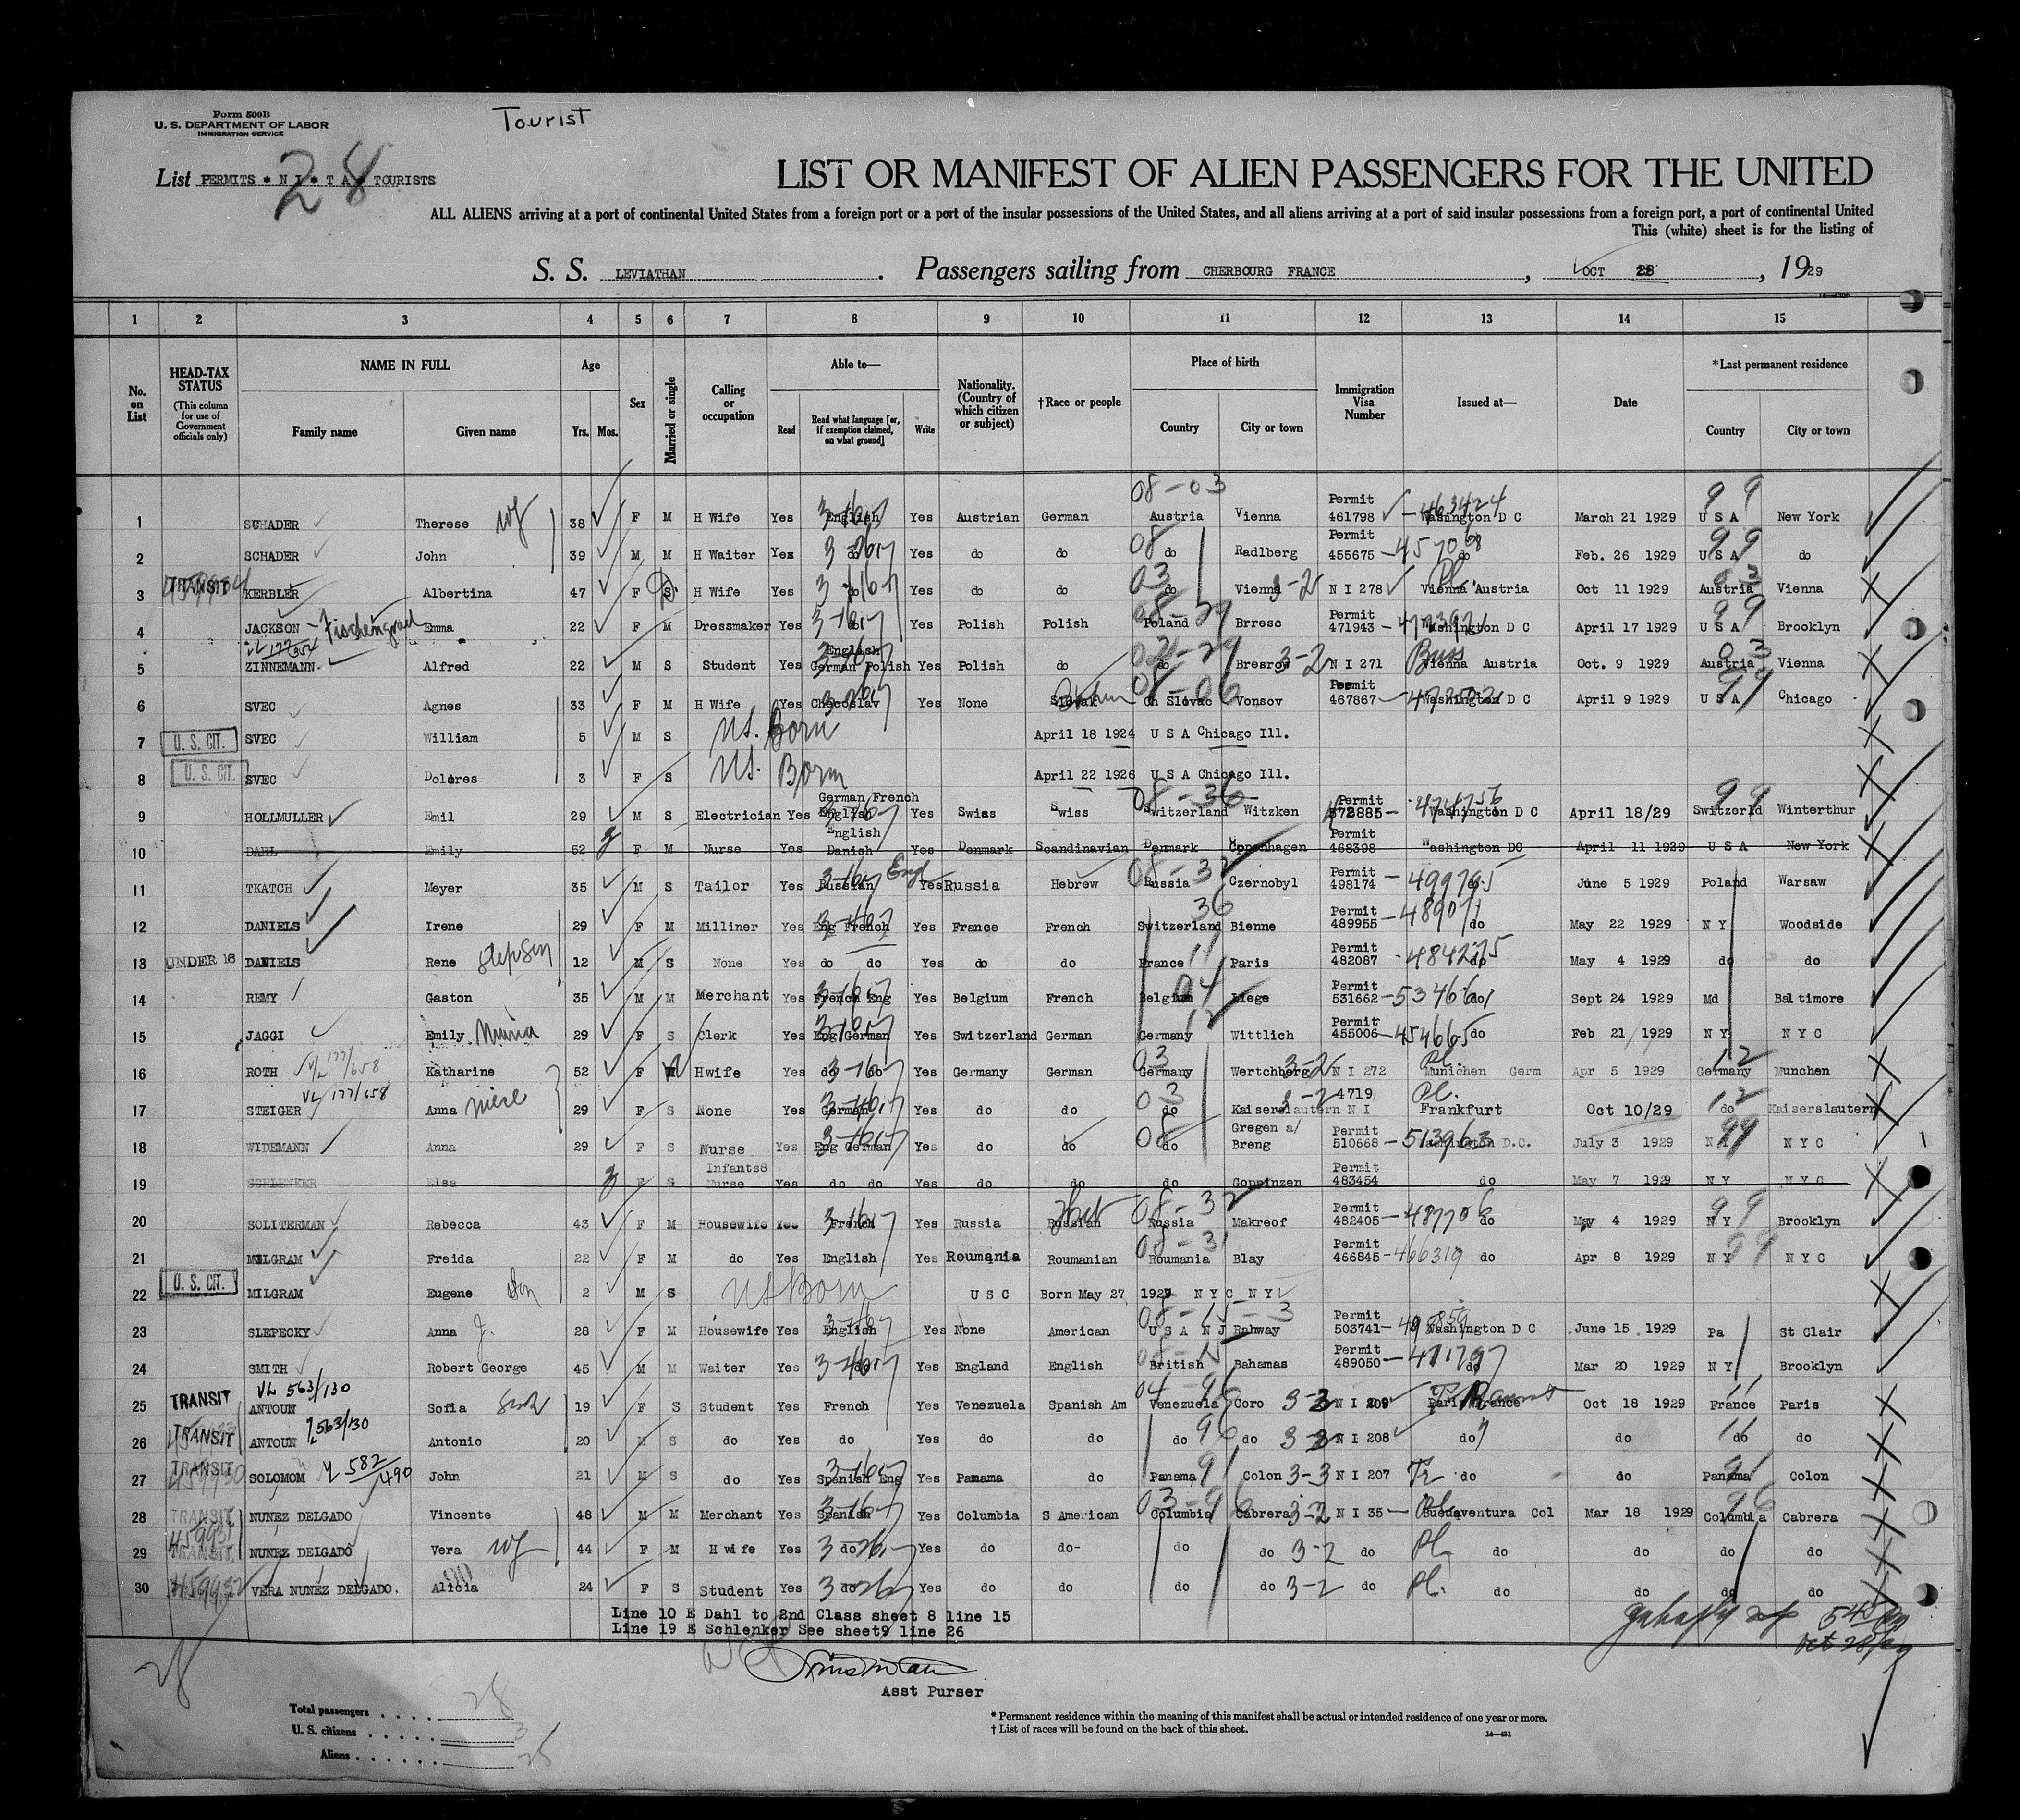 Form 500B
U. S. DEPARTMENT OF LABOR
IMMIGRATION SERVICE
Tourist
List PERMITS * N I * T A * TOURISTS
28
LIST OR MANIFEST OF ALIEN PASSENGERS FOR THE UNITED
ALL ALIENS arriving at a port of continental United States from a foreign port or a port of the insular possessions of the United States, and all aliens arriving at a port of said insular possessions from a foreign port, a port of continental United
This (white) sheet is for the listing of
S. S. LEVIATHAN . Passengers sailing from CHERBOURG FRANCE , OCT 28 , 1929
1 2 3 4 5 6 7 8 9 10 11 12 13 14 15
No. on List
HEAD-TAX STATUS
(This column for use of Government officials only)
NAME IN FULL
Family name Given name
Age
Yrs. Mos.
Sex
Married or single
Calling or occupation
Able to—
Read Read what language [or, if exemption claimed, on what ground] Write
Nationality. (Country of which citizen or subject)
†Race or people
Place of birth
Country City or town
Immigration Visa Number
Issued at—
Date
*Last permanent residence
Country City or town
1 SCHADER Therese wf 38 F M H Wife Yes English Yes Austrian German Austria Vienna Permit 461798 - 463424 Washington D C March 21 1929 U S A New York
2 SCHADER John 39 M M H Waiter Yes do Yes do do do Radlberg Permit 455675 do Feb. 26 1929 U S A do
3 TRANSIT KERBLER Albertina 47 F S H Wife Yes do Yes do do do Vienna 3-2 N I 278 Vienna Austria Oct 11 1929 Austria Vienna
4 JACKSON Emma 22 F M Dressmaker Yes do Yes Polish Polish Poland Brresc Permit 471943 Washington D C April 17 1929 U S A Brooklyn
5 ZINNEMANN Alfred 22 M S Student Yes English German Polish Yes Polish do do Bresrow 3-2 N I 271 Vienna Austria Oct. 9 1929 Austria Vienna
6 SVEC Agnes 33 F M H Wife Yes Checoslav Yes None Slovak Ch Slovac Vonsov Permit 467867 Washington D C April 9 1929 U S A Chicago
7 U. S. CIT. SVEC William 5 M S US. Born April 18 1924 U S A Chicago Ill.
8 U. S. CIT. SVEC Dolores 3 F S US. Born April 22 1926 U S A Chicago Ill.
9 HOLLMULLER Emil 29 M S Electrician Yes German French English Yes Swiss Swiss Switzerland Witzken Permit 472885 - 474756 Washington D C April 18/29 Switzerld Winterthur
10 DAHL Emily 52 F M Nurse Yes English Danish Yes Denmark Scandinavian Denmark Copenhagen Permit 468398 Washington DC April 11 1929 U S A New York
11 TKATCH Meyer 35 M S Tailor Yes Russian Engl Yes Russia Hebrew Russia Czernobyl Permit 498174 - 499795 do June 5 1929 Poland Warsaw
12 DANIELS Irene 29 F M Milliner Yes Eng French Yes France French Switzerland Bienne Permit 489955 do May 22 1929 N Y Woodside
13 UNDER 16 DANIELS Rene stepson 12 M S None Yes do do Yes do do France Paris Permit 482087 - 484275 do May 4 1929 do do
14 REMY Gaston 35 M M Merchant Yes French Eng Yes Belgium French Belgium Liege Permit 531662 do Sept 24 1929 Md Baltimore
15 JAGGI Emily 29 F S Clerk Yes Eng German Yes Switzerland German Germany Wittlich Permit 455006 - 454665 do Feb 21 1929 N Y N Y C
16 ROTH VL 177/658 Katharine 52 F M Hwife Yes do do Yes Germany German Germany Wertchberg 3-2 N I 272 Munichen Germ Apr 5 1929 Germany Munchen
17 STEIGER VL 177/658 Anna niece 29 F S None Yes German Yes do do do Kaiserslautern 4719 N I Frankfurt Oct 10/29 do Kaiserslautern
18 WIDEMANN Anna 29 F S Nurse Yes Eng German Yes do do do Gregen a/ Breng Permit 510668 - 513963 Washington D.C. July 3 1929 N Y N Y C
19 SCHLENKER Elsa F S Infants Nurse Yes do do Yes do do do Goppinzen Permit 483454 do May 7 1929 N Y N Y C
20 SOLITERMAN Rebecca 43 F M Housewife Yes French Yes Russia Russian Russia Makreof Permit 482405 do May 4 1929 N Y Brooklyn
21 MILGRAM Freida 22 F M do Yes English Yes Roumania Roumanian Roumania Blay Permit 466845 - 466319 do Apr 8 1929 N Y N Y C
22 U. S. CIT. MILGRAM Eugene son 2 M S US Born U S C Born May 27 1927 N Y C N Y
23 SLEPECKY Anna J. 28 F M Housewife Yes English Yes None American U S A N J Rahway Permit 503741 Washington D C June 15 1929 Pa St Clair
24 SMITH Robert George 45 M M Waiter Yes do Yes England English British Bahamas Permit 489050 do Mar 20 1929 N Y Brooklyn
25 TRANSIT VL 563/130 ANTOUN Sofia 19 F S Student Yes French Yes Venezuela Spanish Am Venezuela Coro N I 209 Paris France Oct 18 1929 France Paris
26 TRANSIT VL 563/130 ANTOUN Antonio 20 M S do Yes do Yes do do do do N I 208 do do do do
27 TRANSIT SOLOMOM VL 582/490 John 21 M S do Yes Spanish Eng Yes Panama do Panama Colon 3-3 N I 207 Tr do do Panama Colon
28 TRANSIT NUNEZ DELGADO Vincente 48 M M Merchant Yes Spanish Yes Columbia S American Columbia Cabrera 3-2 N I 35 Buenaventura Col Mar 18 1929 Columbia Cabrera
29 TRANSIT NUNEZ DELGADO Vera wf 44 F M H wife Yes do Yes do do- do do 3-2 do Pl do do do do
30 VERA NUNEZ DELGADO. Alicia 24 F S Student Yes do Yes do do do do 3-2 do Pl. do do do do
Line 10 E Dahl to 2nd Class sheet 8 line 15
Line 19 E Schlenker See sheet9 line 26
Oct 28/29
Asst Purser
28
Total passengers . . . . 28
U. S. citizens . . . . . 3
Aliens . . . . . . 25
* Permanent residence within the meaning of this manifest shall be actual or intended residence of one year or more.
† List of races will be found on the back of this sheet.
14—431